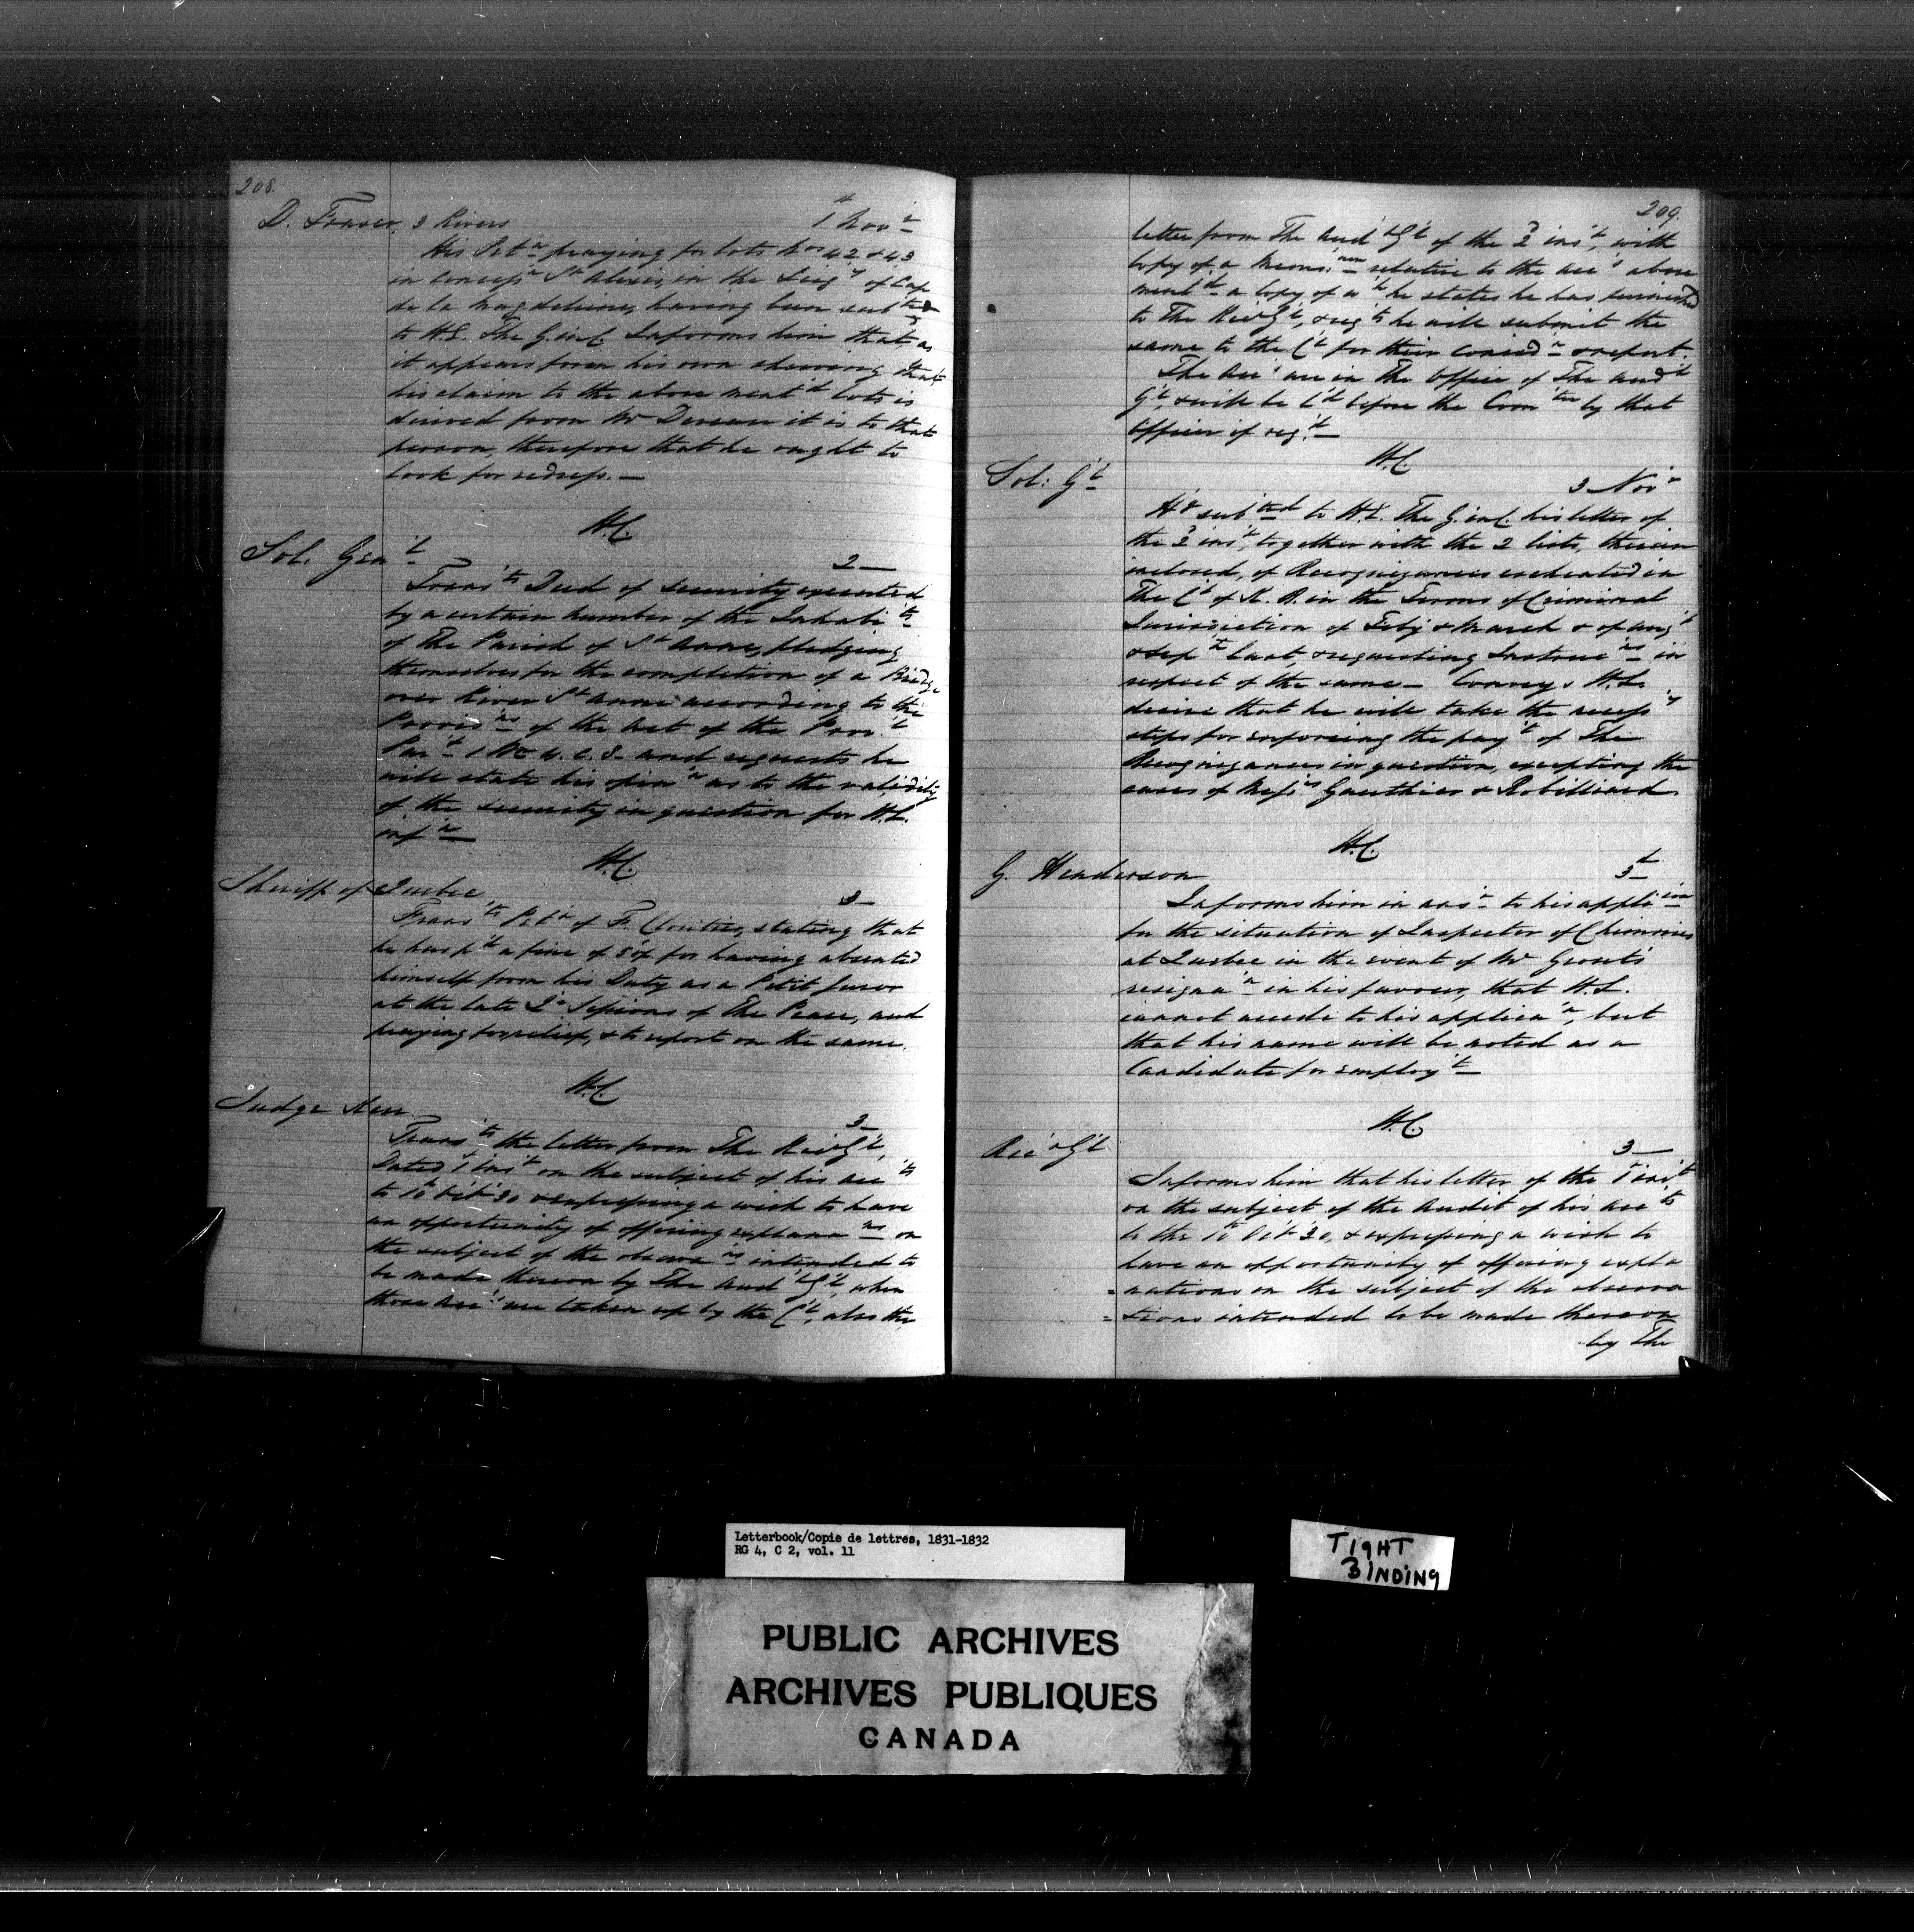 208.
D. Fraser, 3 Rivers 1st Novr
His Petn praying for lots Nos 42 & 43
in concessn St Alexis, in the Seigy of Cap
de la Magdeleine, having been subted
to H.E. The G. in C. Informs him that, as
it appears from his own shewing that
his claim to the above mentd lots is
derived from Mr it is to that
person, therefore that he ought to
look for redress. —
H.C.
Sol. Genl 2 —
Transts Deed of Security executed
by a certain number of the Inhabits
of The Parish of St Anne, pledging
themselves for the completion of a Bridge
over River St Anne according to the
Provisns of the Act of the Provl
Part 1 Wm 4. c. 8. and requests he
will state his opinn as to the validity
of the security in question for H.E.
infn —
H.C.
Sheriff of Quebec 3 —
Transts Petn of F. Cloutier, stating that
he has pd a fine of for having absented
himself from his Duty as a Petit Juror
at the late Qr Sessions of The Peace, and
praying for relief, & to report on the same.
H.C.
Judge Kerr 3 —
Transts the letter from The RecrGl,
Dated 1st Inst on the subject of his accts
to 10th Octr 30 & expressing a wish to have
an opportunity of offering explanans on
the subject of the observns intended to
be made thereon by The AudrGl, when
those accts are taken up by the Ct, also the
209.
letter from The AudrGl of the 2 inst, with
copy of a relative to the accs above
mentd a copy of wh he states he has furnished
to The RecrGl, & reqts he will submit the
same to the Ct for their considn & report.
The Accs are in The Office of The Audr
Gl, & will be ld before the Comtee by that
Officer if reqd —
H.C.
Sol: Gl 3 Novr
Hs subted to H.E. The G. in C. his letter of
the 2 inst, together with the 2 lists, therein
inclosed, of Recognizances estreated in
The Ct of K. B. in the Terms of Criminal
Jurisdiction of Feby & March & of Augt
& Sepr last, & requesting Instrucns in
respect of the same — Conveys H.E.
desire that he will take the necessy
steps for enforcing the payt of The
Recognizances in question, excepting the
cases of Messrs Gauthier & Robilliard.
H.C.
G. Henderson 3d
Informs him in ansr to his applicn
for the situation of Inspector of Chimnies
at Quebec in the event of Mr Grout's
resignan in his favour, that H.E.
cannot accede to his applican, but
that his name will be noted as a
Candidate for employt —
H.C.
RecrGl 3 —
Informs him that his letter of the 1 inst
on the subject of the Audit of his accts
to the 10th Octr 30, & expressing a wish to
have an opportunity of offering expla
=nations on the subject of the observa
=tions intended to be made thereon
by The
Letterbook/Copie de lettres, 1831-1832
RG 4, C 2, vol. 11
TIGHT
BINDING
PUBLIC ARCHIVES
ARCHIVES PUBLIQUES
CANADA